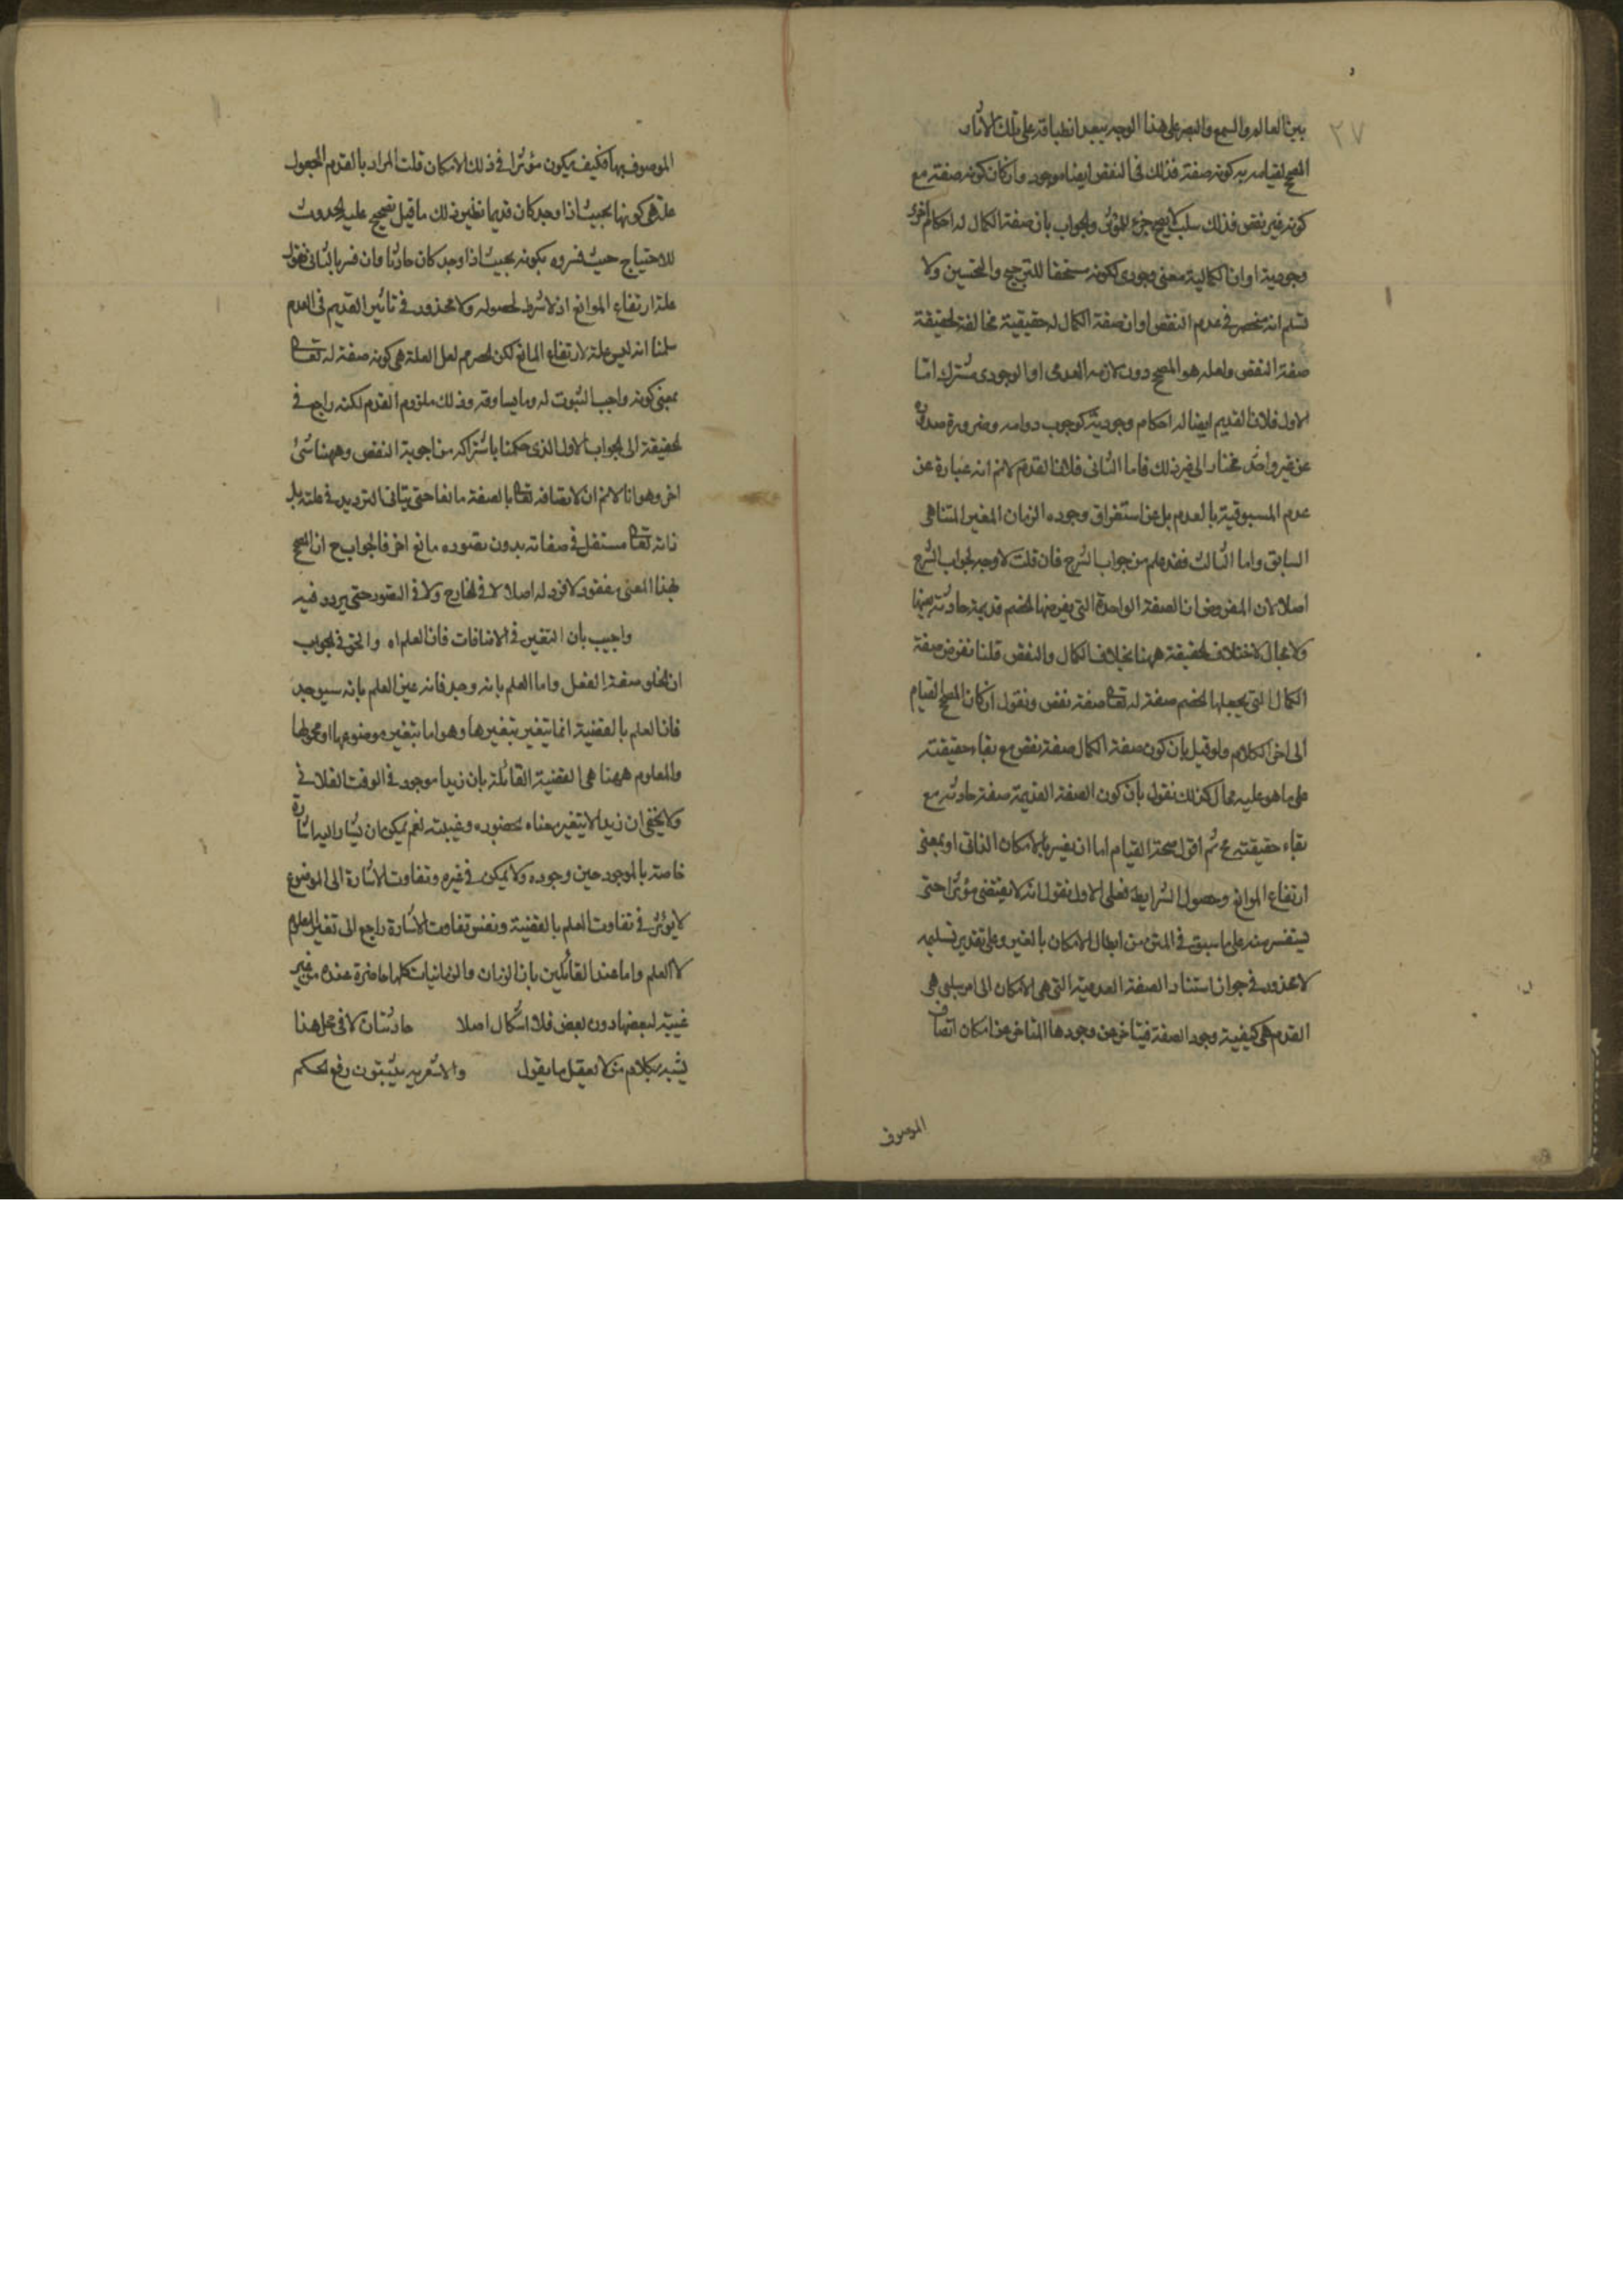 ٣٧
بين العالم والسمع والبصر على هذا الوجه يبعد انطباقه على تلك الآثار
المصحح لقيامه به كونه صفة فذلك في النقص ايضا موجود وان كان كونه صفة مع
كونه غير نقص فذلك سلب لا يصح جزء للمؤثر والجواب بان صفة الكمال له احكام اخرى
وجودية او ان الكمالية معنى وجودي لكونه مستحقا للترجيح والتحسين ولا
نسلم انه منحصر في عدم النقص او ان صفة الكمال له حقيقية مخالفة لحقيقة
صفة النقص ولعله هو المصحح دون لازمه العدمي او الوجودي مشترك اما
الاول فلان القديم ايضا له احكام وجودية كوجوب دوامه وضرورة صدوره
عن غير واحد مختار الى غير ذلك فاما الثاني فلان القدم لانم انه عبارة عن
عدم المسبوقية بالعدم بل عن استغراق وجوده الزمان الغير المتناهي
السابق واما الثالث فقد علم من جواب الشرح فان قلت لا وجه لجواب الشرح
اصلا لان المفروض ان الصفة الواحدة التي يفرضها الخصم قديمة حادثة بعينها
ولا مجال لاختلاف الحقيقة ههنا بخلاف الكمال والنقص قلنا نفرض صفة
الكمال التي يجعلها الخصم صفة له تعالى صفة نقص ونقول ان كان المصحح لقيام
الى اخر الكلام ولو قيل بان كون صفة الكمال صفة نقص مع بقاء حقيقته
على ما هو عليه محال كذلك نقول بان كون الصفة القديمة صفة حادثة مع
بقاء حقيقته مح ثم اقول صحة القيام اما ان يفسر بالامكان الذاتي او بمعنى
ارتفاع الموانع وحصول الشرايط فعلى الاول نقول انه لا يقتضي مؤثرا حتى
يستفسر عنه على ما سبق في المتن من ابطال الامكان بالغير وعلى تقدير تسليمه
لا محذور في جواز استناد الصفة العدمية التي هي الامكان الى امر سلبي هي
القدم هي كيفية وجود الصفة فيتاخر عن وجودها المتاخر عن امكان اتصاف
الموصوف
الموصوف بها فكيف يكون مؤثرا في ذلك الامكان قلت المراد بالقدم المجعول
علة هي كونها بحيث اذا وجد كان قديما نظير ذلك ما قيل تصحيح علية الحدوث
للاحتياج حيث فسروه بكونه بحيث اذا وجد كان حادثا وان فسر بالثاني فنقول
علة ارتفاع الموانع اذ لا شرط لحصوله ولا محذور في تاثير القديم في العدم
سلمنا انه ليس علة لارتفاع المانع لكن الحصر مم لعل العلة هي كونه صفة له تعالى
بمعنى كونه واجب الثبوت له وما يساوقه وذلك ملزوم القدم لكنه راجع في
الحقيقة الى الجواب الاول الذي حكمنا باشتراكه من اجوبة النقص وههنا شئ
اخر وهو انا لانم ان لاتصافه تعالى بالصفة مانعا حتى يتاتى الترديد في علته بل
ذاته تعالى مستقل في صفاته بدون تصوره مانع اخر فالجواب ح ان المصحح
بهذا المعنى مفقود لا فرد له اصلا لا في الخارج ولا في التصور حتى يردد فيه
واجيب بان التغير في الاضافات فان العلم اه والحق في الجواب
ان الخلو صفة الفعل واما العلم بانه وجد فانه عين العلم بانه سيوجد
فان العلم بالقضية انما يتغير بتغيرها وهو اما بتغير موضوعها او محمولها
والمعلوم ههنا هي القضية القائلة بان زيدا موجود في الوقت الفلاني
ولا يخفى ان زيدا لا يتغير معناه بحضوره وغيبته نعم يمكن ان يشار اليه اشارة
خاصة بالموجود حين وجوده ولا يمكن في غيره وتفاوت الاشارة الى الموضوع
لا يؤثر في تفاوت العلم بالقضية ونفس تفاوت الاشارة راجع الى تغير المعلوم
لا العلم واما عند القائلين بان الزمان والزمانيات كلها حاضرة عنده من غير
غيبة لبعضها دون بعض فلا اشكال اصلا حادثتان لا في محل هذا
يشبه كلام من لا يعقل ما يقول والاشعرية يثبتون رفع الحكم